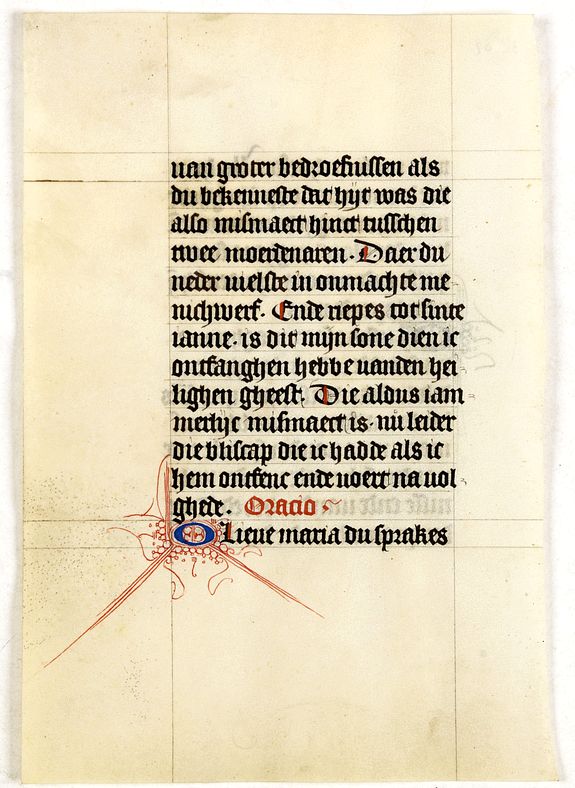 uan groter bedroefnissen als
du bekenneste dat hijt was die
also mismaect hinct tusschen
twee moerdenaren. Daer du
neder vielste in onmachte me
nichwerf. Ende riepes tot sinte
ianne. is dit mijn sone dien ic
ontfanghen hebbe vanden hei
lighen gheest. Die aldus iam
merlijc mismaect is. nu leider
die bliscap die ic hadde als ic
hem ontfenc ende voert na vol
ghede. Oracio.
O Lieue maria du sprakes